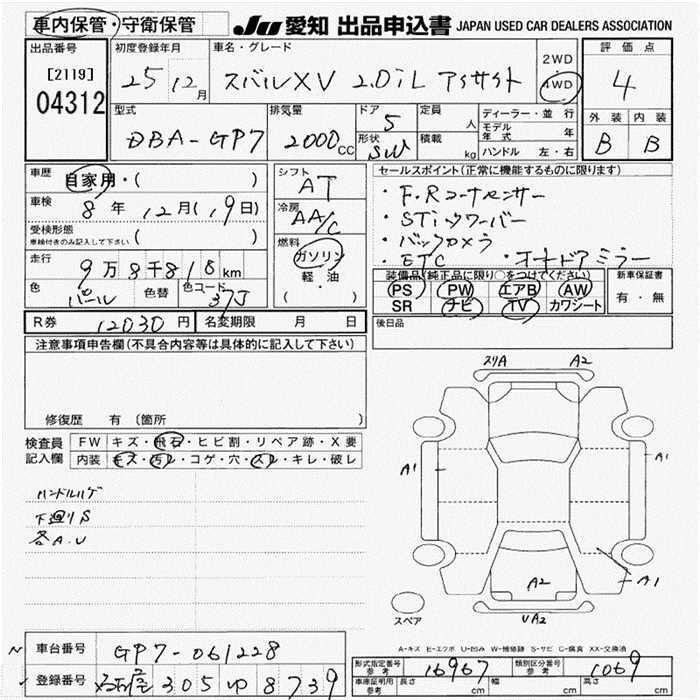 車内保管・守衛保管 JU 愛知 出品申込書 JAPAN USED CAR DEALERS ASSOCIATION
出品番号 初度登録年月 車名・グレード 2WD 評価点
[2119] 25 12月 スバルXV 2.0iL アイサイト 4WD 4
04312
型式 排気量 ドア 定員 ディーラー・並行 外装 内装
DBA-GP7 2000CC 5 人 モデル年式 年 B B
形状 SW 積載 kg ハンドル 左・右
車歴 自家用・( ) シフト AT セールスポイント(正常に機能するものに限ります)
車検 8年 12月(19日) 冷房 AA/C ・F.Rコーナーセンサー
受検形態 ・STiタワーバー
車検付きのみ記入して下さい ( ) 燃料 ・バックカメラ
走行 9万8千818km ガソリン ・ETC ・オートドアミラー
軽・油
( )
色 パール 色替 色コード 37J
装備品(純正品に限り○をつけてください) 新車保証書
PS PW エアB AW 有・無
SR ナビ TV カワシート
R券 12030円 名変期限 月 日 後日品
注意事項申告欄(不具合内容等は具体的に記入して下さい)
修復歴 有 (箇所 )
検査員記入欄 FW キズ・飛石・ヒビ割・リペア跡・X要
内装 キズ・汚レ・コゲ・穴・スレ・キレ・破レ
ハンドルハゲ
下廻りS
各A.U
スリA A2
A1 A1
A2 A1
スペア UA2
A-キズ E-エクボ U-凹み W-補修跡 S-サビ C-腐食 XX-交換済
車台番号 GP7-061228
形式指定番号 参考 16967 類別区分番号 参考 1069
登録番号 名古屋 305 ゆ 8739
車庫証明用 参考 長さ cm 幅 cm 高さ cm